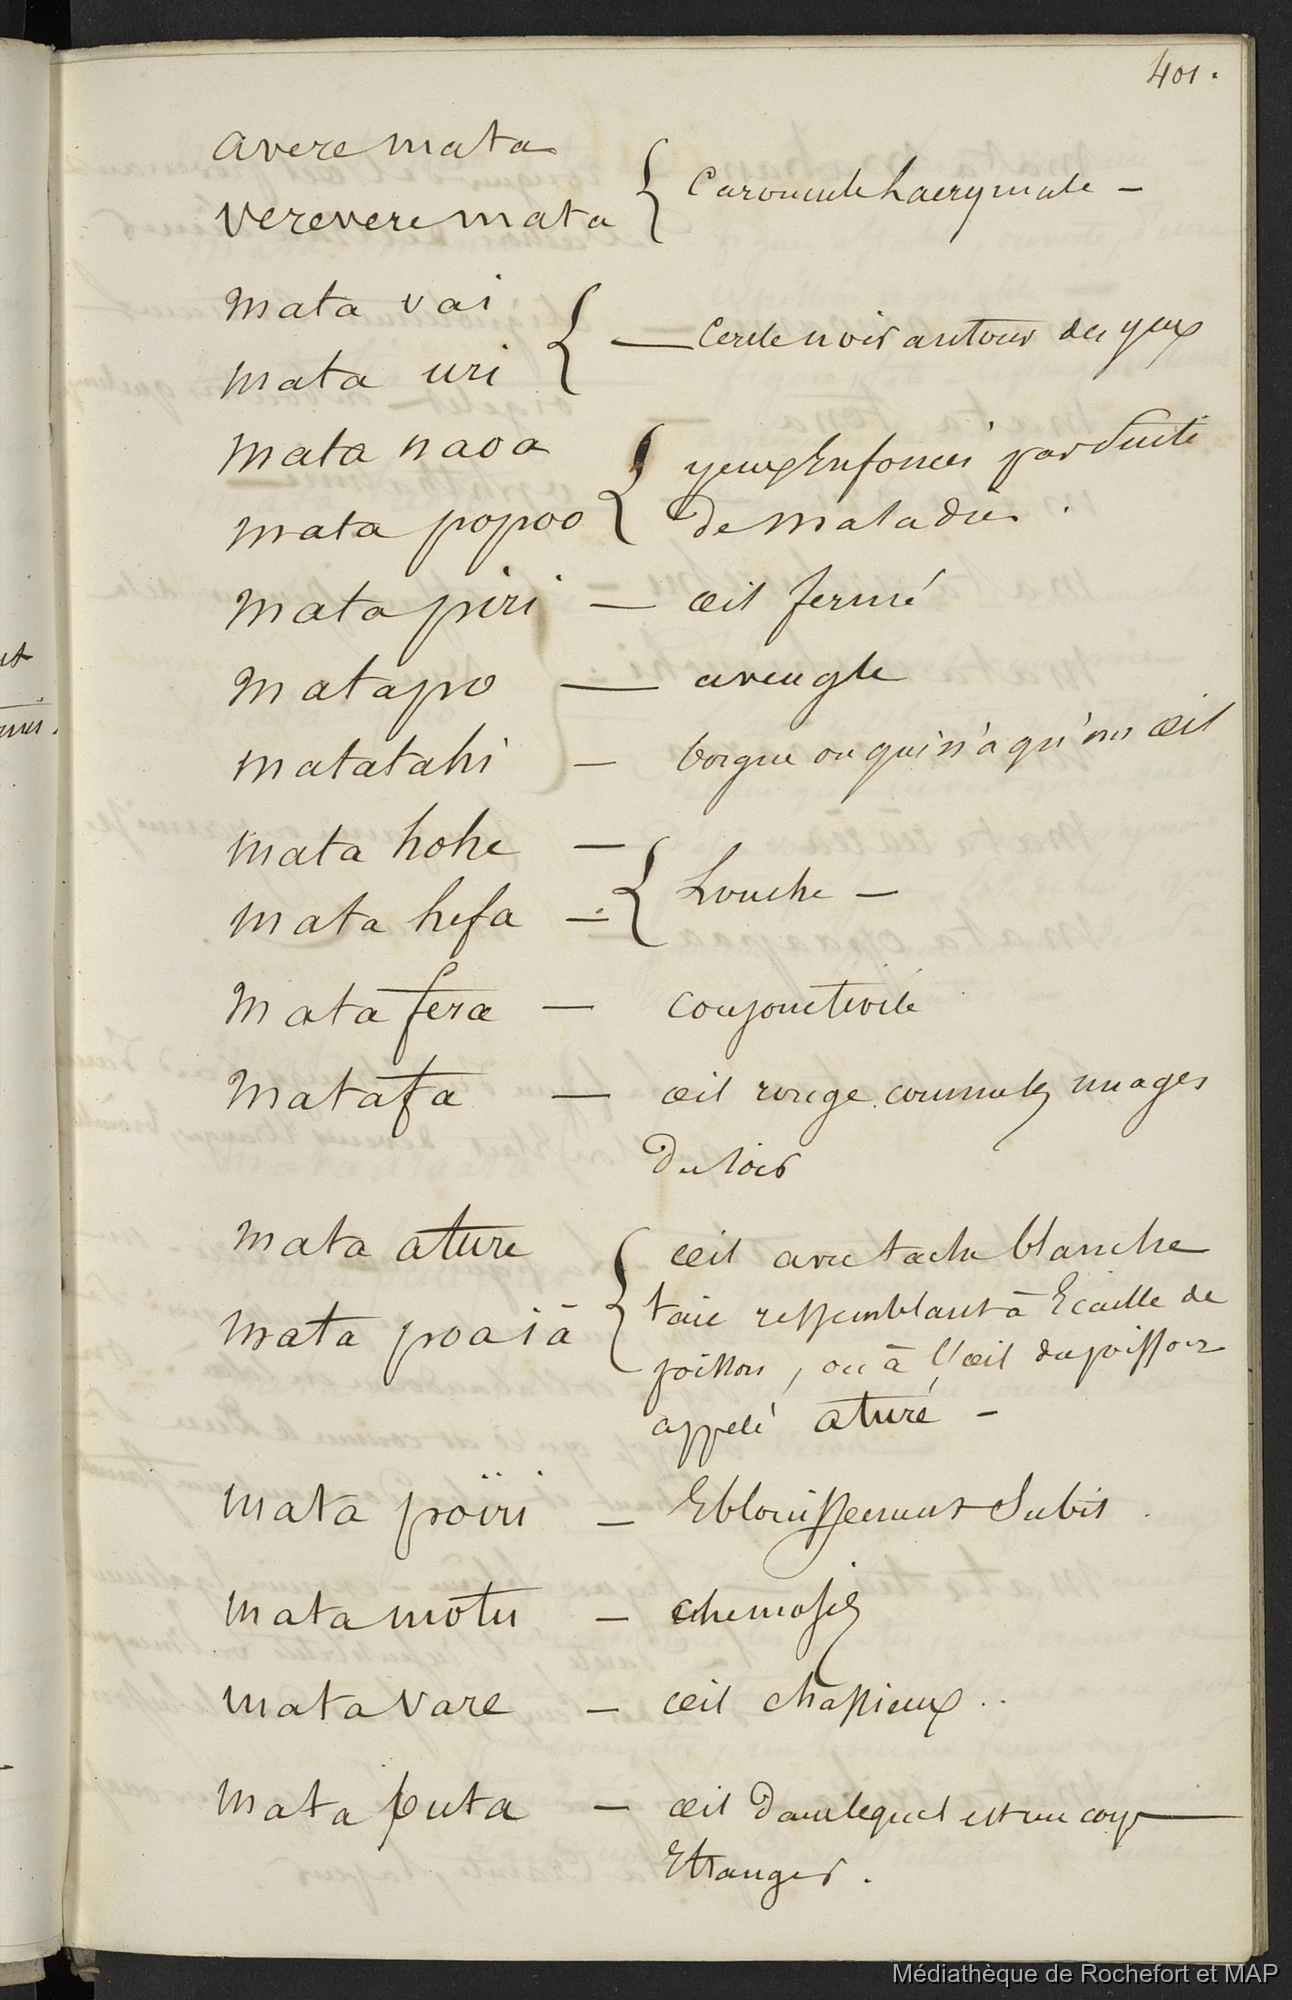 401.
avere mata
verevere mata { Caroncule Lacrymale –
mata vai
mata uri { — Cercle noir autour des yeux
mata naoa
mata popoo { yeux Enfoncés par Suite
de maladies.
mata piri — œil fermé
matapo — aveugle
matatahi — borgne ou qui n'a qu'un œil
mata hohe –
mata hefa – { Louche –
mata fera — conjonctivite
matafa — œil rouge comme les nuages
du soir
mata ature
mata poaiā { œil avec tache blanche
taie ressemblant à Ecaille de
poisson, ou à l'œil du poisson
appelé aturé –
mata poïri – Eblouissement Subit
mata motu – chemosis
mata vare – œil chassieux ..
mata puta – œil dans lequel est un corps
Etranger.
Médiathèque de Rochefort et MAP